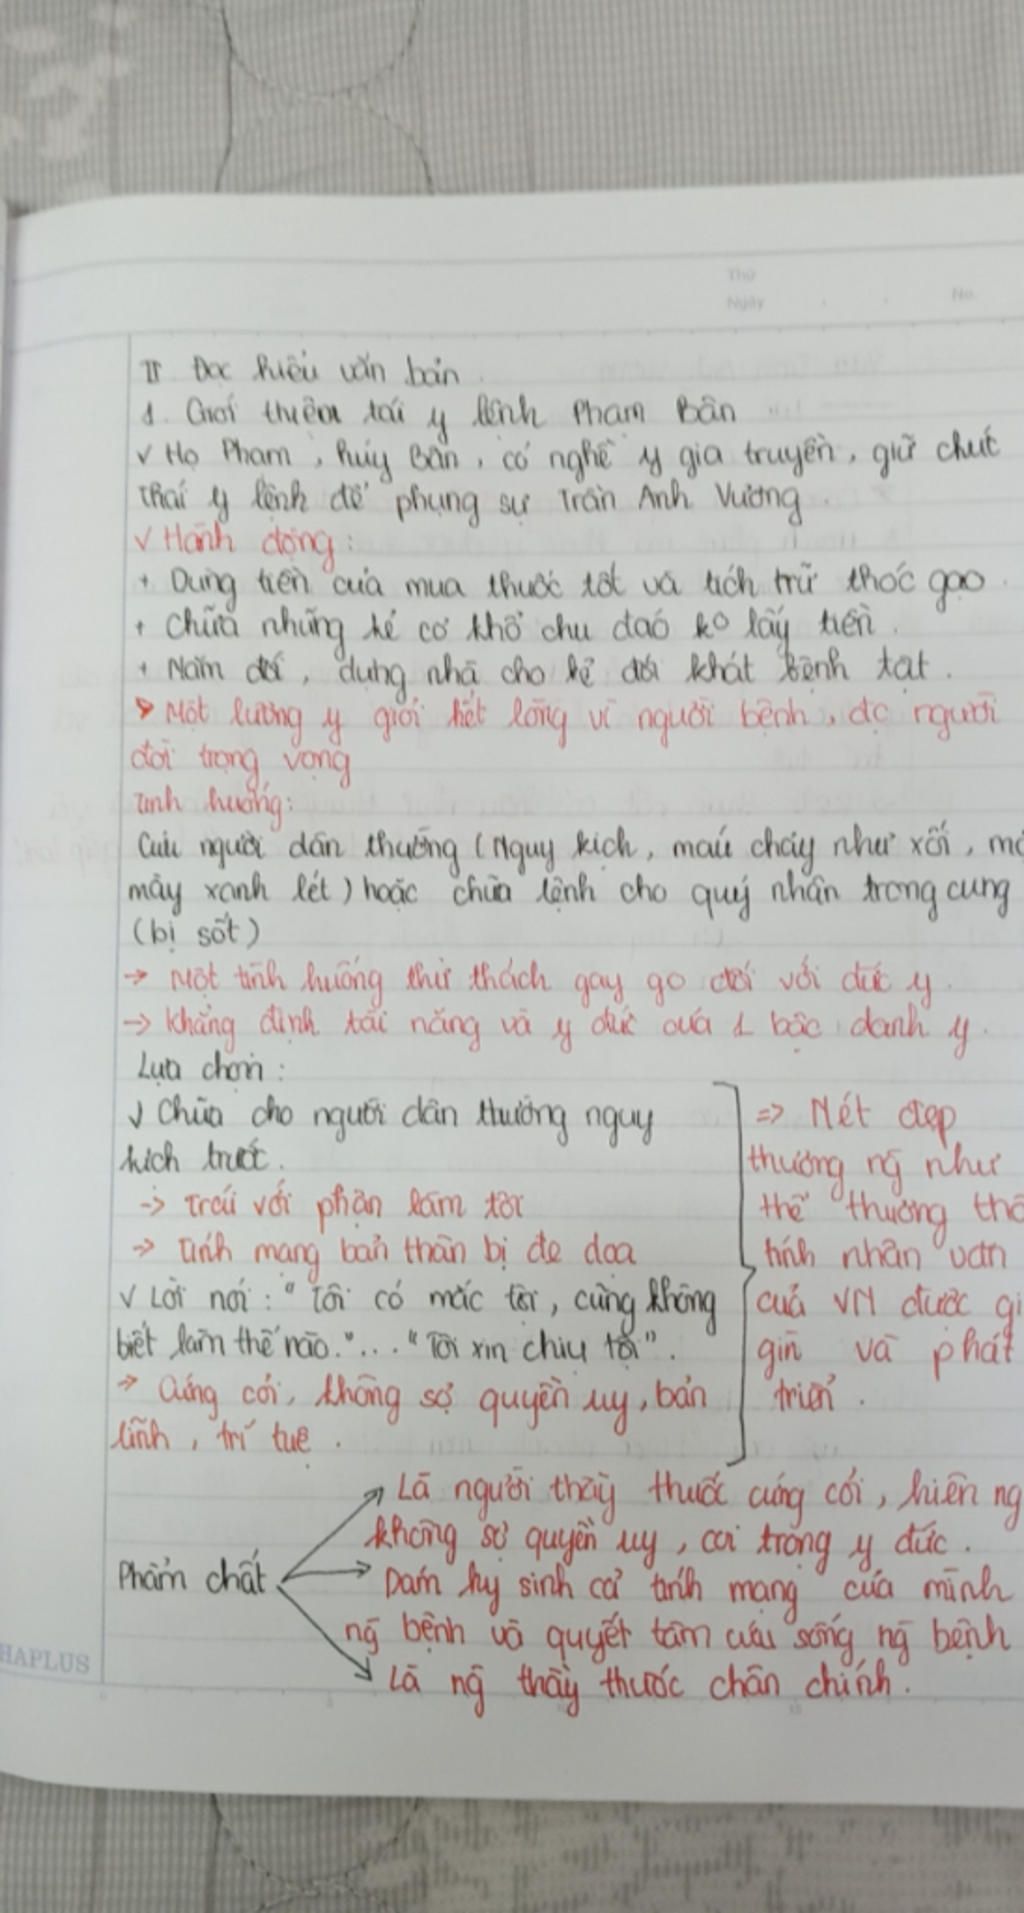 Thứ
Ngày
No.
II Đọc hiểu văn bản.
1. Giới thiệu tái y lệnh Phạm Bân
√ Họ Phạm, húy Bân, có nghề y gia truyền, giữ chức
thái y lệnh để phụng sự Trần Anh Vương
√ Hành động:
+ Dùng tiền của mua thuốc tốt và tích trữ thóc gạo.
+ Chữa những kẻ cơ khổ chu đáo ko lấy tiền.
+ Năm đói, dựng nhà cho kẻ đói khát bệnh tật.
→ Một lương y giỏi hết lòng vì người bệnh, đc người
đời trọng vọng
Tình huống:
Cứu người dân thường (Nguy kịch, máu chảy như xối, mặ
mày xanh lét) hoặc chữa bệnh cho quý nhân trong cung
(bị sốt)
→ Một tình huống thử thách gay go đối với đức y.
→ Khẳng định tài năng và y đức của 1 bậc danh y.
Lựa chọn:
√ Chữa cho người dân thường nguy
kịch trước.
→ Trái với phận làm tôi
→ tính mạng bản thân bị đe dọa
√ Lời nói: "Tôi có mắc tội, cũng không
biết làm thế nào."... "Tội xin chịu tội".
→ Cứng cỏi, không sợ quyền uy, bản
lĩnh, trí tuệ.
=> Nét đẹp
thương ng̃ như
thể thương thâ
tính nhân văn
của VN được gi
gìn và phát
triển.
Phẩm chất
Là người thầy thuốc cứng cỏi, hiên ng
không sợ quyền uy, coi trọng y đức.
Dám hy sinh cả tính mạng của mình
ng̃ bệnh và quyết tâm cứu sống ng̃ bệnh
Là ng̃ thầy thuốc chân chính.
HAPLUS